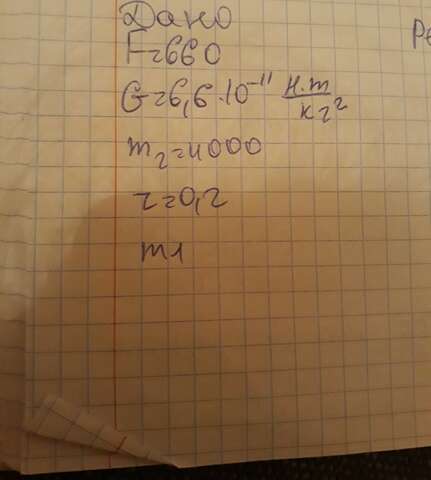 Дано
Ре
F=660
G=6,6·10⁻¹¹ н·m/кг²
m₂=4000
r=0,2
m1